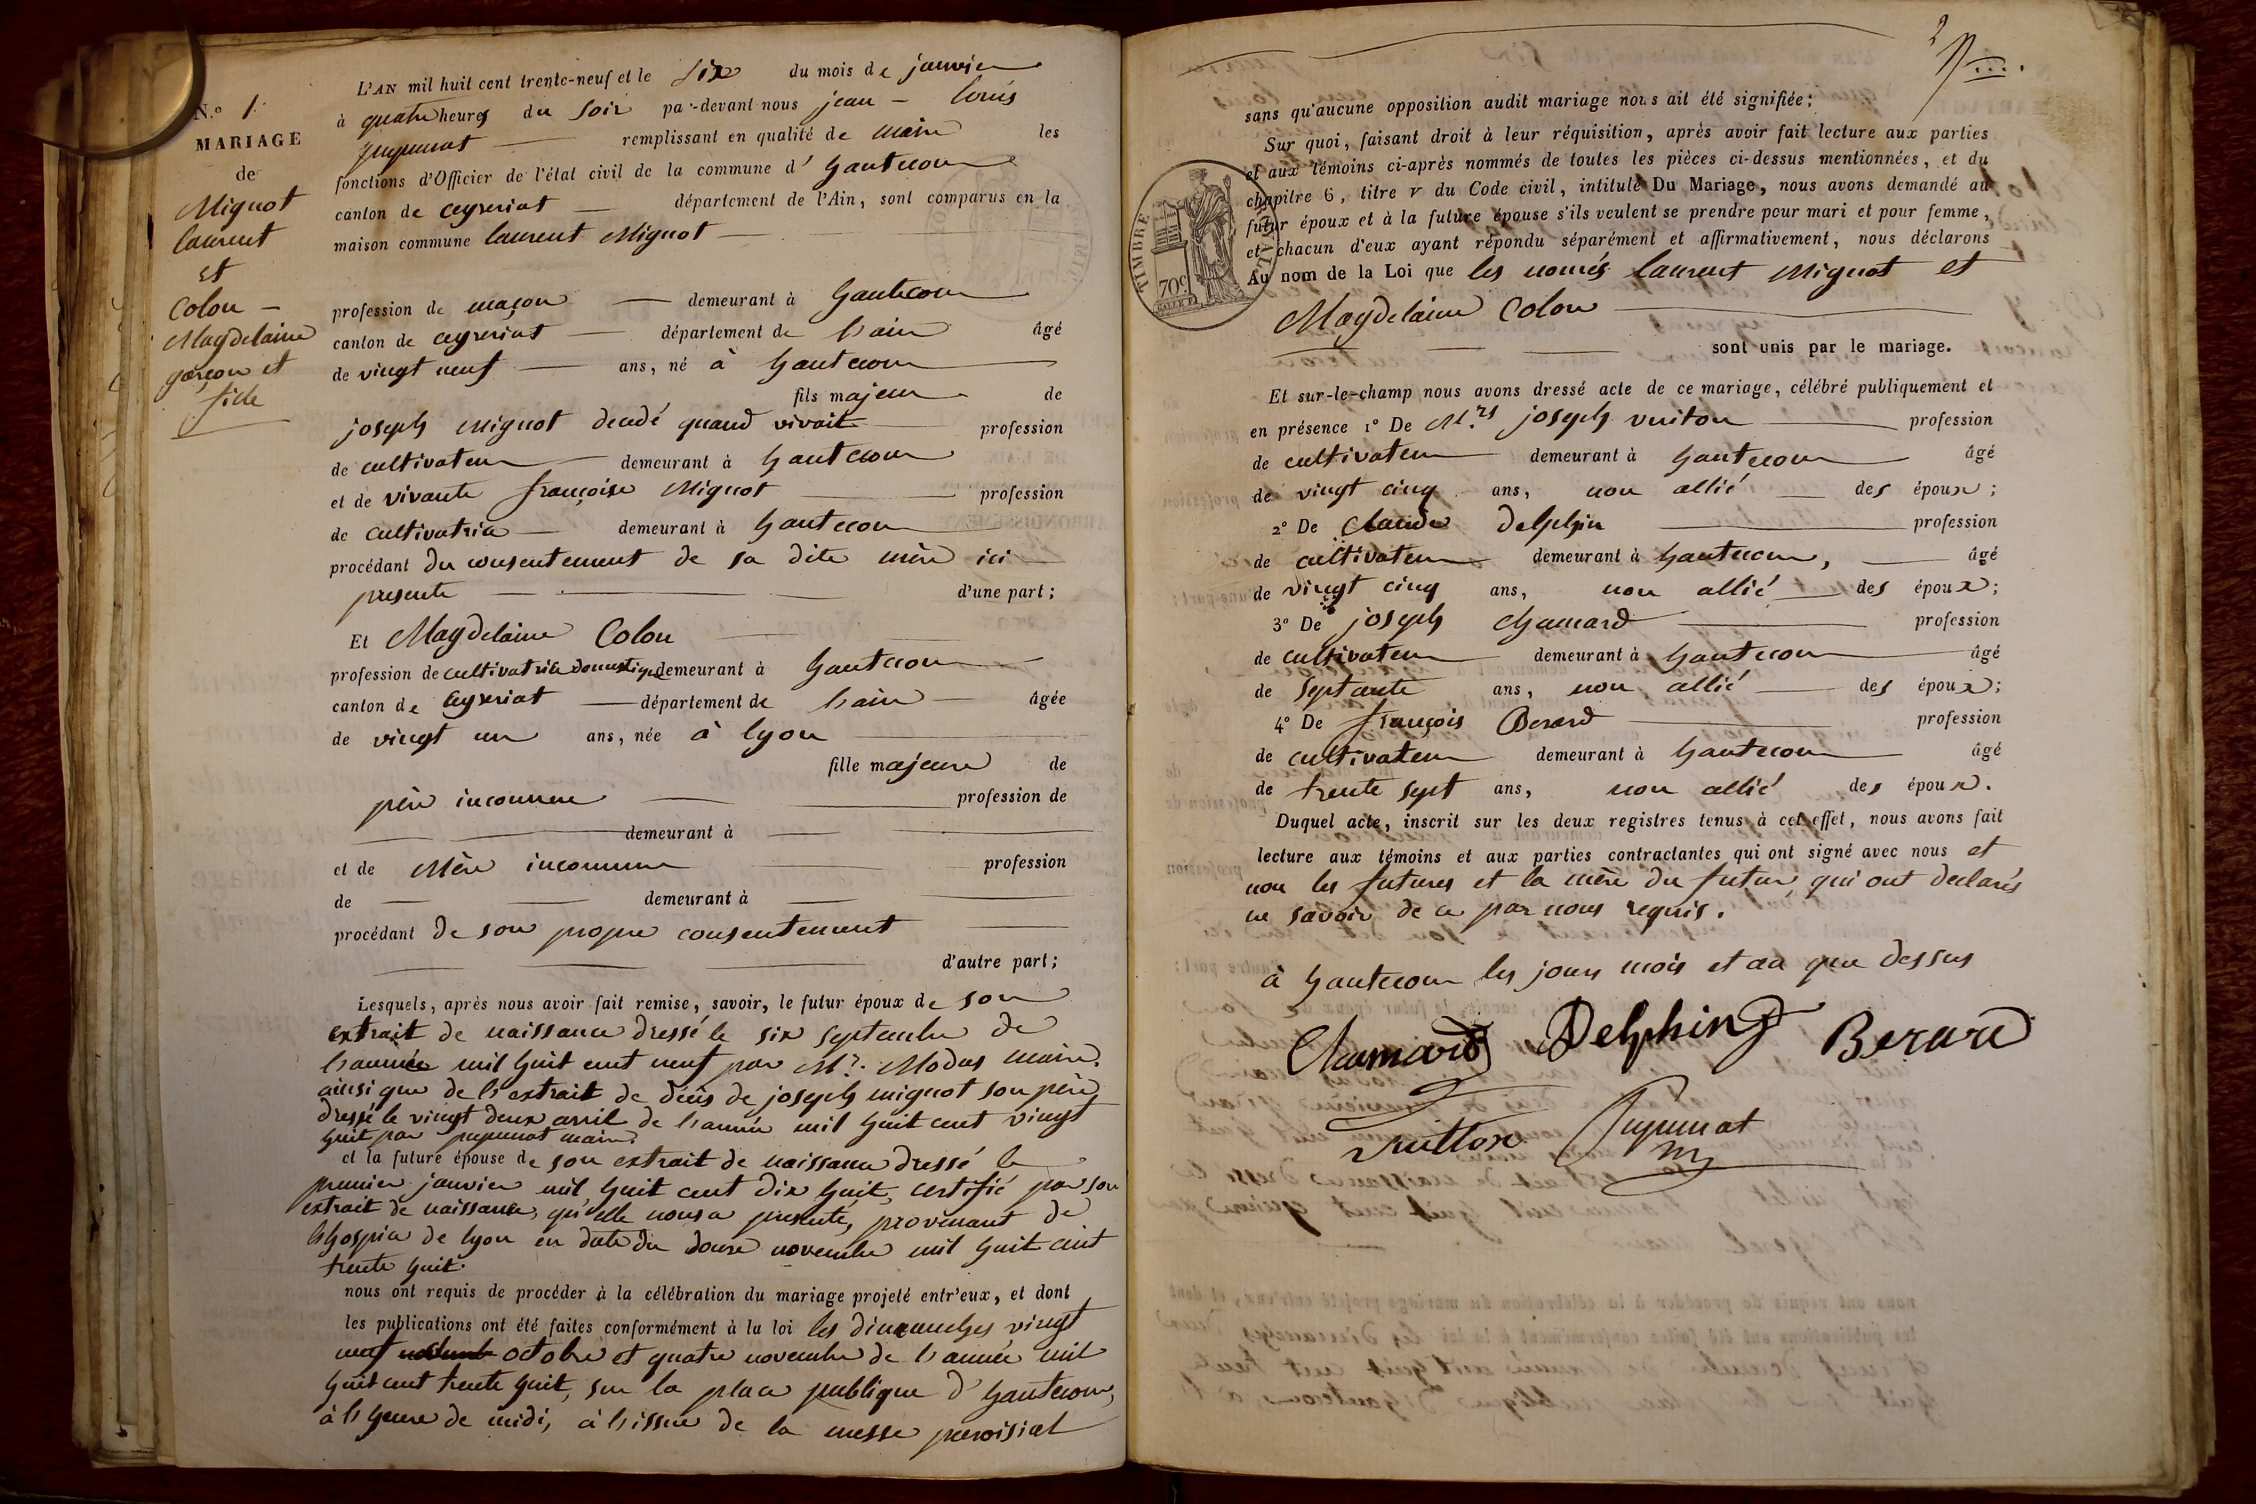 N.o 1.
MARIAGE
de
Mignot
laurent
et
Colon
Magdelaine
garçon et
fille
L'AN mil huit cent trente-neuf et le six du mois de janvier
à quatre heures du soir par-devant nous jean - louis
pupunat remplissant en qualité de maire les
fonctions d'Officier de l'état civil de la commune d'hautecour
canton de ceyzeriat département de l'Ain, sont comparus en la
maison commune laurent Mignot
profession de maçon demeurant à hautecour
canton de ceyzeriat département de l'ain âgé
de vingt neuf ans, né à hautecour
fils majeur de
joseph Mignot decedé quand vivait profession
de cultivateur demeurant à hautecour
et de vivante françoise Mignot profession
de cultivatrice demeurant à hautecour
procédant du consentement de sa dite mère ici
presente d'une part;
Et Magdelaine Colon
profession de cultivatrice domestique demeurant à hautecour
canton de Ceyzeriat département de l'ain âgée
de vingt un ans, née à lyon
fille majeure de
père inconnue profession de
demeurant à
et de Mère inconnue profession
de demeurant à
procédant de son propre consentement
d'autre part;
Lesquels, après nous avoir fait remise, savoir, le futur époux de son
extrait de naissance dressé le six septembre de
l'année mil huit cent neuf par Mr. Modas maire.
ainsi que de l'extrait de décès de joseph mignot son père
dressé le vingt deux avril de l'année mil huit cent vingt
huit par pupunat maire.
et la future épouse de son extrait de naissance dressé le
premier janvier mil huit cent dix huit, certifié par son
extrait de naissance, qu'elle nous a presenté, provenant de
l'hospice de lyon en date du douze novembre mil huit cent
trente huit.
nous ont requis de procéder à la célébration du mariage projeté entr'eux, et dont
les publications ont été faites conformément à la loi les dimanches vingt
neuf octobre et quatre novembre de l'année mil
huit cent trente huit, sur la place publique d'hautecour,
à l'heure de midi, à l'issue de la messe paroisial
2
sans qu'aucune opposition audit mariage nous ait été signifiée;
Sur quoi, faisant droit à leur réquisition, après avoir fait lecture aux parties
et aux témoins ci-après nommés de toutes les pièces ci-dessus mentionnées, et du
chapitre 6, titre v du Code civil, intitulé Du Mariage, nous avons demandé au
futur époux et à la future épouse s'ils veulent se prendre pour mari et pour femme,
et chacun d'eux ayant répondu séparément et affirmativement, nous déclarons
Au nom de la Loi que les només laurent Mignot et
Magdelaine Colon
sont unis par le mariage.
TIMBRE
ROYAL
70c
Et sur-le-champ nous avons dressé acte de ce mariage, célébré publiquement et
en présence 1° De Mrs joseph vuiton profession
de cultivateur demeurant à hautecour âgé
de vingt cinq ans, non allié des époux;
2° De Claude Delphin profession
de cultivateur demeurant à hautecour, âgé
de vingt cinq ans, non allié des époux;
3° De joseph chamard profession
de cultivateur demeurant à hautecour âgé
de septante ans, non allié des époux;
4° De françois Berard profession
de cultivateur demeurant à hautecour âgé
de trente sept ans, non allié des époux.
Duquel acte, inscrit sur les deux registres tenus à cet effet, nous avons fait
lecture aux témoins et aux parties contractantes qui ont signé avec nous et
non les futures et la mère du futur, qui ont declarés
ne savoir de ce par nous requis.
à hautecour les jours mois et an que dessus
Chamard Delphin Berard
Vuitton Pupunat